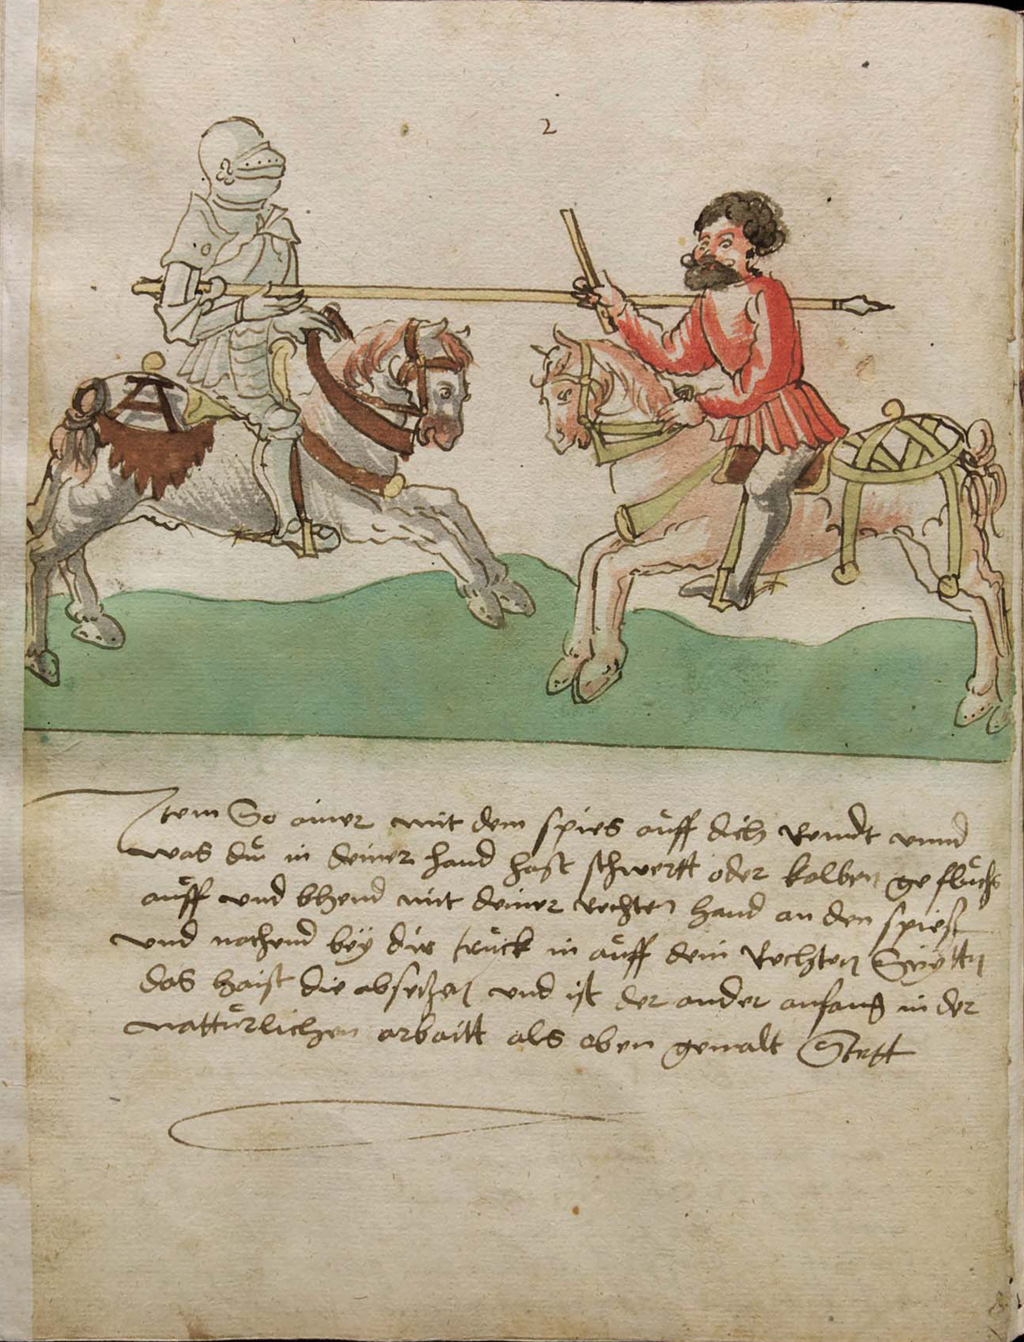 2
Item So ainer mit dem spies auff dich Rendt vnnd
was dŭ in deiner hand hast schwertt oder kolben
aŭff vnd bhend mit deiner rechten hand an den spiesß
vnd nachend beÿ dir trŭck in aŭff dein Rechten Seÿtten
das haist die absetzen vnd ist der ander anfang in der
nattŭrlichen arbaitt als oben gemalt Stett